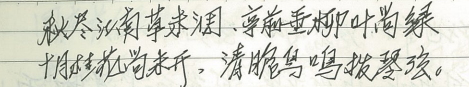 秋尽江南草未凋、亭前垂柳叶尚绿
十月桂花尚未开，清脆鸟鸣拨琴弦。